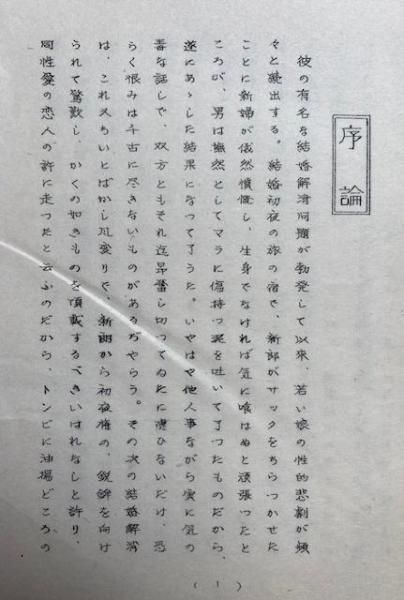 序論
彼の有名な結婚解消問題が勃発して以来、若い娘の性的悲劇が頻
々と簇出する。結婚初夜の旅の宿で、新郎がサックをちらつかせた
ことに新婦が俄然憤慨し、生身でなければ気に喰はぬと頑張つたと
ころが、男は憮然としてマラに傷持つ泥を吐いて了つたものだから、
遂にあゝした結果になつて了うた。いやはや他人事ながら実に気の
毒な話しで、双方ともそれ迄昂奮し切つてゐたに違ひないだけ、恐
らく恨みは千古に尽きないものがあるぢやらう。その次の結婚解消
は、これ又ちいとばかし風変りで、新郎から初夜権の、鋭鉾を向け
られて驚歎し、かくの如きものを頂戴するべきいはれなしと許り、
同性愛の恋人の許に走つたと云ふのだから、トンビに油揚どころの
(1)